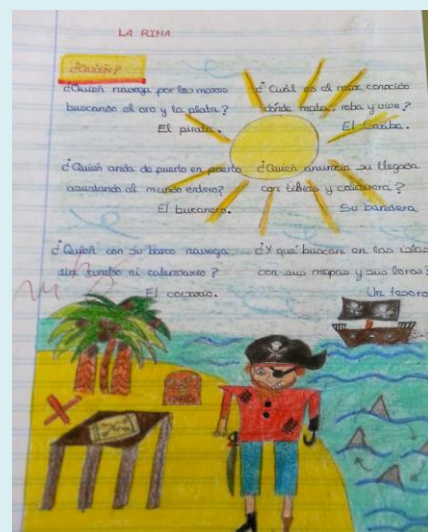 LA RIMA
¿QUIÉN?
¿Quién navega por los mares
buscando el oro y la plata?
El pirata.
¿Quién anda de puerto en puerto
asustando al mundo entero?
El bucanero.
¿Quién con su barco navega
sin rumbo ni calendario?
El corsario.
¿Cuál es el mar conocido
dónde mata, roba y vive?
El Caribe.
¿Quién anuncia su llegada
con tibias y calavera?
Su bandera
¿Y qué buscan en las islas
con sus mapas y sus loros?
Un tesoro